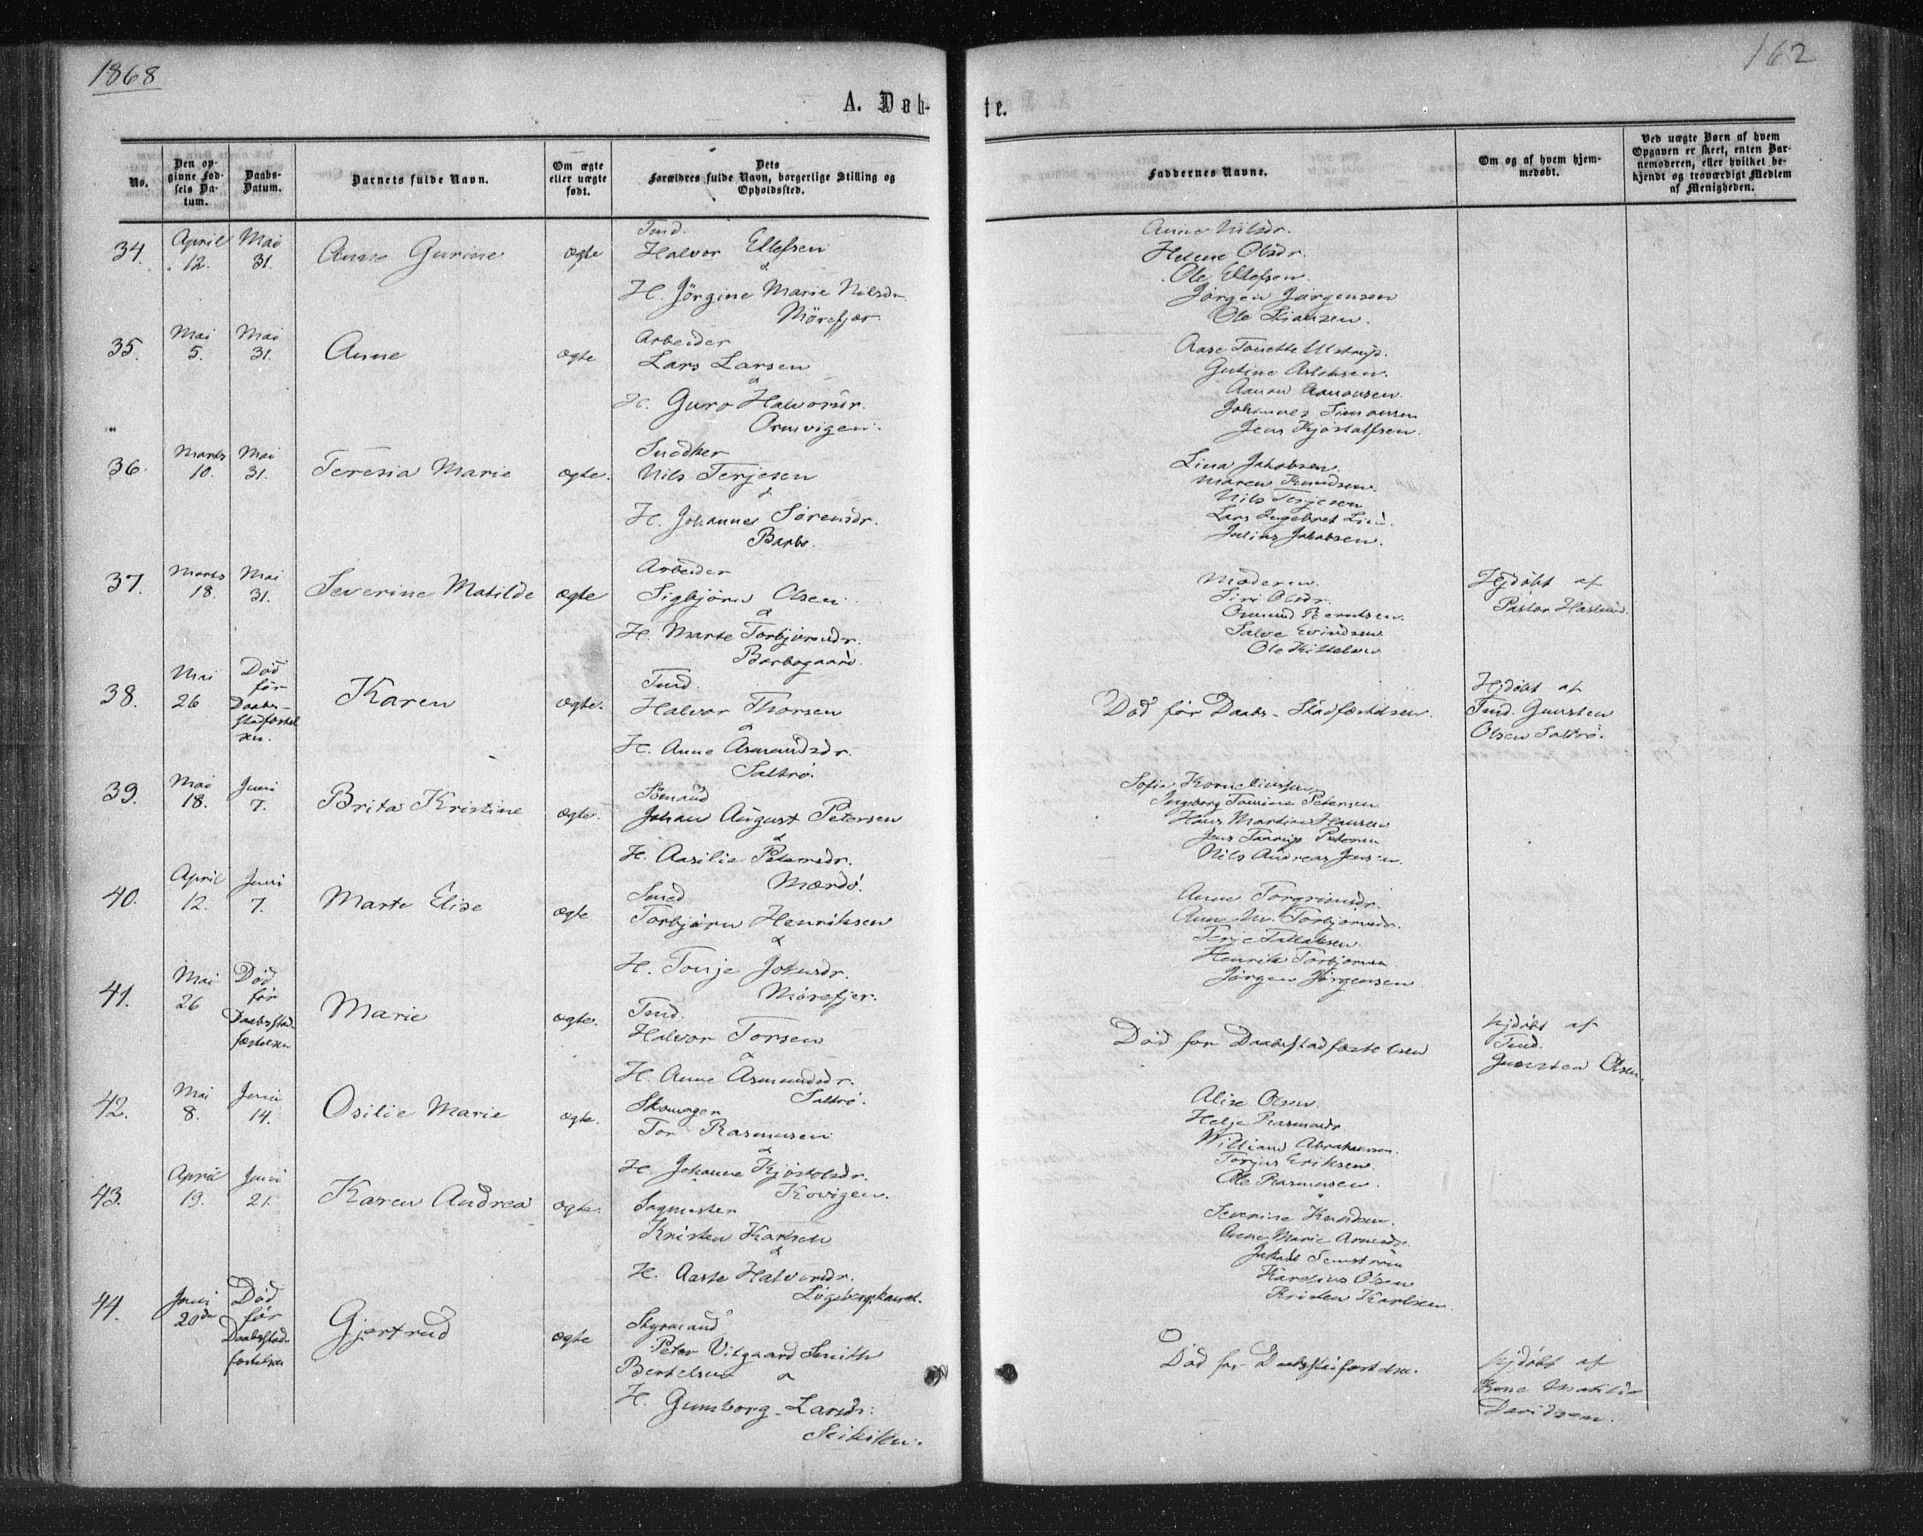 1868
162
A. Døb-
te.
No.
Den op-
givne Fød-
sels Da-
tum.
Daabs-
Datum.
Barnets fulde Navn.
Om ægte
eller uægte
født.
Dets
Forældres fulde Navn, borgerlige Stilling og
Opholdssted.
Faddernes Navne.
Om og af hvem hjem-
medøbt.
Ved uægte Børn af hvem
Opgaven er skeet, enten Bar-
nemoderen, eller hvilket be-
kjendt og troværdigt Medlem
af Menigheden.
34.
April
12.
Mai
31.
Anne Gurine
ægte
Tmd.
Halvor Ellefsen
&
H. Jörgine Marie Nilsdr.
Mörefjær.
Anne Nilsdr.
Helene Olsdr.
Ole Ellefsen.
Jørgen Jørgensen
Ole
35.
Mai
5.
Mai
31.
Anne
ægte
Arbeider
Lars Larsen
&
H. Guro Halvorsdr.
Ormvigen.
Aase Tonette
Gutine Aslaksen.
Aanon Aanonsen.
Johannes Simonsen
Jens Kjøstolfsen.
36.
Marts
10.
Mai
31.
Teresia Marie
ægte.
Snedker
Nils Terjesen
&
H. Johanne Sørensdr.
Barbo.
Lina Jakobsen.
Maren Knudsen.
Nils Terjesen
Lars Ingebret
Julius Jakobsen.
37.
Marts
18.
Mai
31.
Severine Matilde
ægte
Arbeider
Sigbjørn Olsen
&
H. Marte Torbjørnsdr.
Barbogaard.
Moderen.
Siri Olsdr.
Osmund Berntsen.
Salve Evindsen
Ole Kittelsen
Hjdøbt af
Pastor
38.
Mai
26
Død
før
Daabs-
stadfæstel
sen.
Karen
ægte.
Tmd.
Halvor Thorsen
&
H. Anne Asmundsdr.
Saltrø.
Død før Daabs-Stadfæstelsen.
Hjdøbt af
Tmd. Gunsten
Olsen Saltrø.
39.
Mai
18.
Juni
7.
Brita Kristine
ægte.
Sømand
Johan August Petersen
&
H. Aasilie Petersdr.
Mærdø.
Sofie Korneliussen
Ingborg Tomine Petersen
Hans Martin Hansen
Jens Petersen
Nils Andreas Jensen.
40.
April
12.
Juni
7.
Marte Elise
ægte
Smed
Torbjørn Henriksen
&
H. Tonje Johnsdr.
Mörefjer.
Anne Torgrimsdr.
Anne M. Torbjørnsdr.
Terje Tallaksen.
Henrik Torbjørnsen
Jørgen Jørgensen.
41.
Mai
26
Død
før
Daabsstad
fæstelsen
Marie
ægte.
Tmd.
Halvor Torsen
&
H. Anne Asmundsdr.
Saltrø.
Død før Daabsstadfæstelsen
Hjdøbt af
Tmd.
Gunsten Olsen.
42.
Mai
8.
Juni
14.
Osilie Marie
ægte.
Skomager
Tor Rasmusen
&
H. Johanne Kjøstolsdr.
Kovigen.
Alise Olsen.
Helje Rasmusdr.
William Abrahamsen.
Torjus Eriksen.
Ole Rasmusen.
43.
April
19.
Juni
21.
Karen Andrea
ægte.
Sagmester
Kristen Karlsen
&
H. Aaste Halvorsdr.
Severine Knudsen.
Anne Marie Arnesdr.
Jakob
Karelius Olsen
Kristen Karlsen.
44.
Juni
20de
Død
før
Daabsstad-
fæstelsen
Gjertrud
ægte
Styrmand
Peter Vilgaard Smith
Bertelsen &
H. Gunborg Larsdr.
Død før Daabsstadfæstelsen.
Hjdøbt af
Matilde
Davidsen.